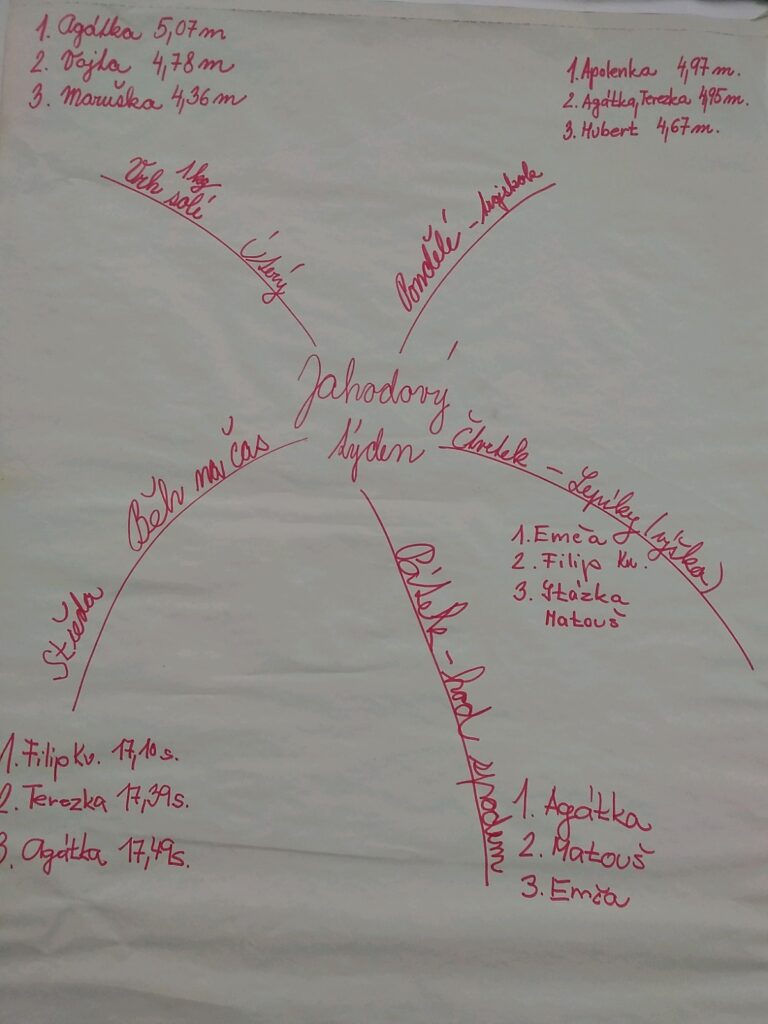 1. Agátka 5,07 m
2. Vojta 4,78 m
3. Maruška 4,36 m
1. Apolenka 4,97 m.
2. Agátka, Terezka 4,95 m.
3. Hubert 4,67 m.
Vrh 1kg
solí
Úterý
Pondělí - trojskok
Jahodový
týden
Běh na čas
Středa
Čtvrtek - Lepíky (výška)
1. Emča
2. Filip Kv.
3. Stázka
Matouš
Pátek - hod spodem
1. Filip Kv. 17,10 s.
2. Terezka 17,39 s.
3. Agátka 17,49 s.
1. Agátka
2. Matouš
3. Emča